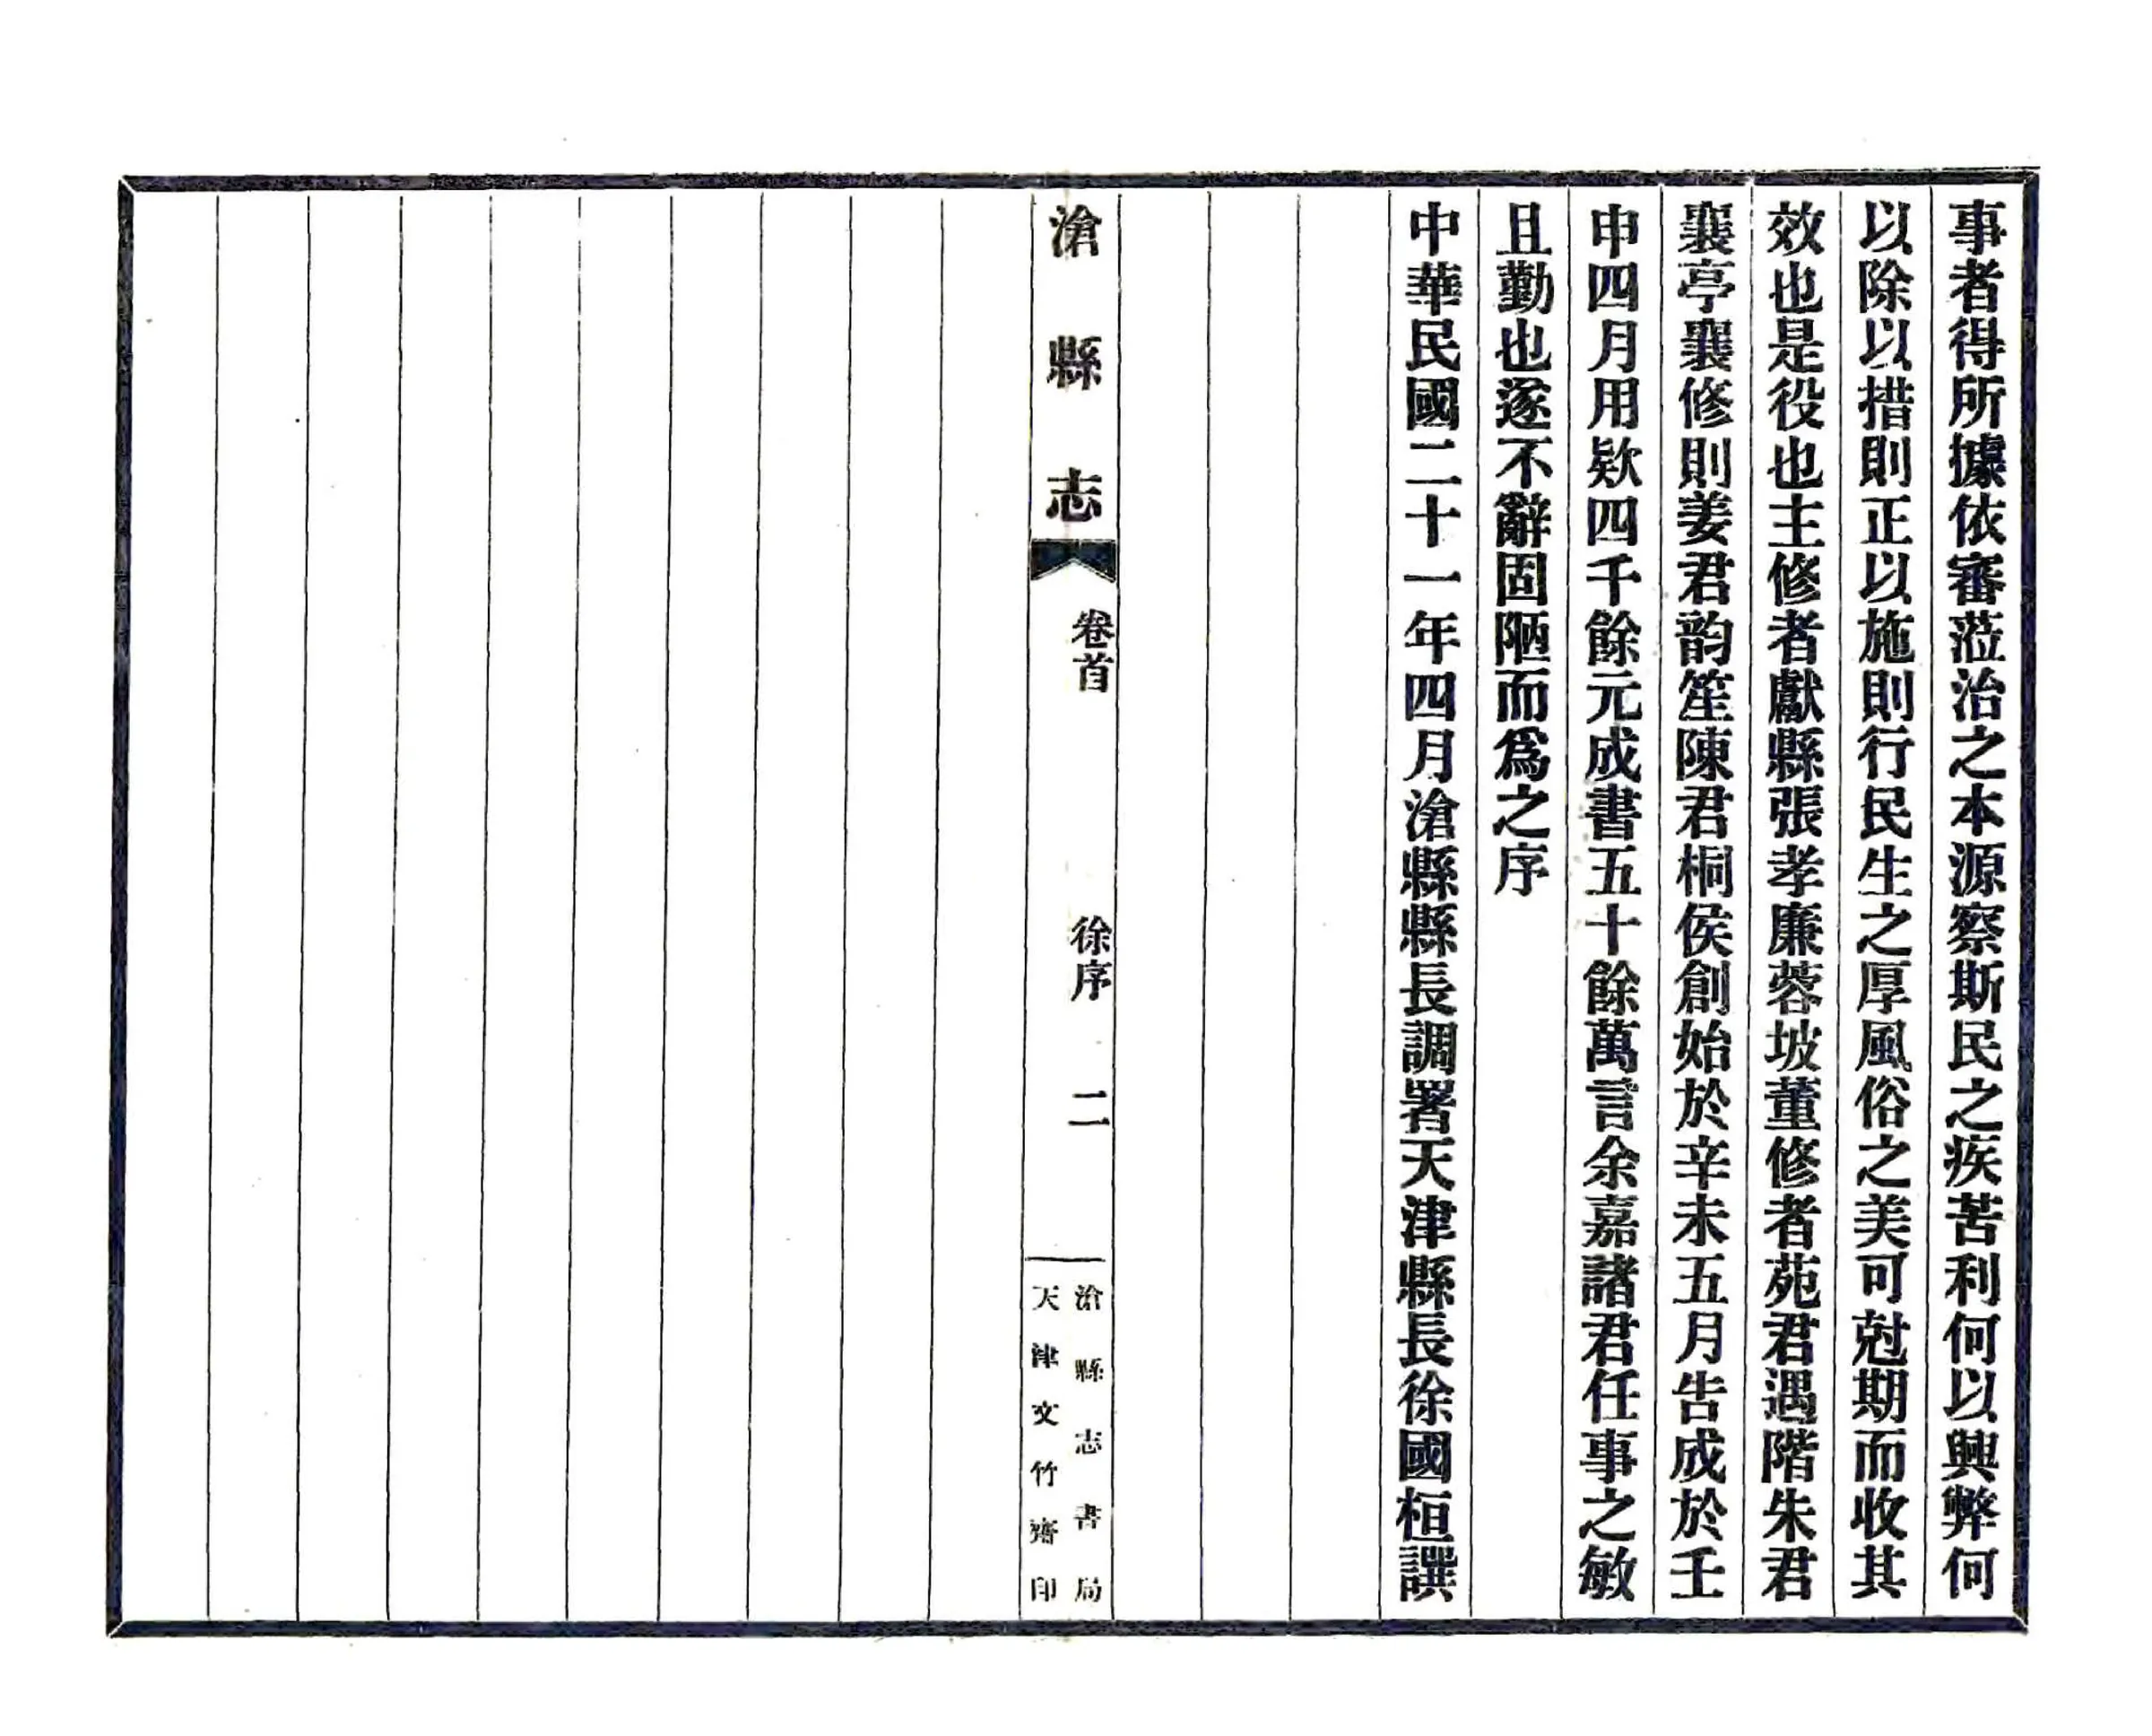 事者得所據依審蒞治之本源察斯民之疾苦利何以興弊何
以除以措則正以施則行民生之厚風俗之美可尅期而收其
效也是役也主修者獻縣張孝廉蓉坡董修者苑君遇階朱君
襄亭襄修則姜君韵笙陳君桐侯創始於辛未五月告成於壬
申四月用欵四千餘元成書五十餘萬言余嘉諸君任事之敏
且勤也遂不辭固陋而爲之序
中華民國二十一年四月滄縣縣長調署天津縣長徐國桓譔
滄縣志
卷首
徐序
二
滄縣志書局
天津文竹齋印